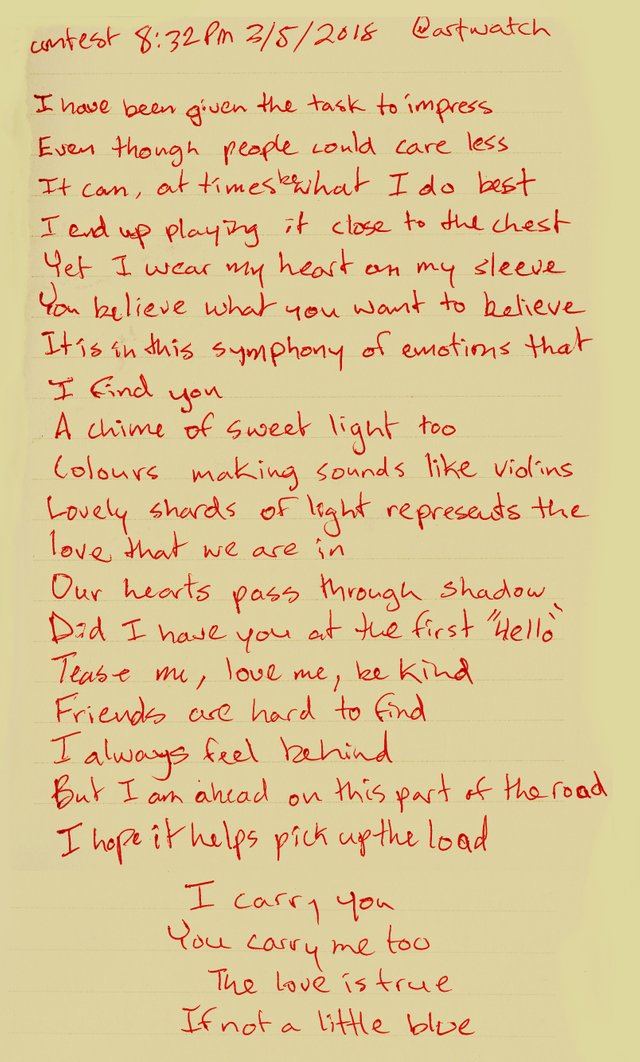 contest 8:32pm 3/5/2018 @artwatch
I have been given the task to impress
Even though people could care less
It can, at times be what I do best
I end up playing it close to the chest
Yet I wear my heart on my sleeve
You believe what you want to believe
It is in this symphony of emotions that
I find you
A chime of sweet light too
Colours making sounds like violins
Lovely shards of light represents the
love that we are in
Our hearts pass through shadow
Did I have you at the first "Hello"
Tease me, love me, be kind
Friends are hard to find
I always feel behind
But I am ahead on this part of the road
I hope it helps pick up the load
I carry you
You carry me too
The love is true
If not a little blue